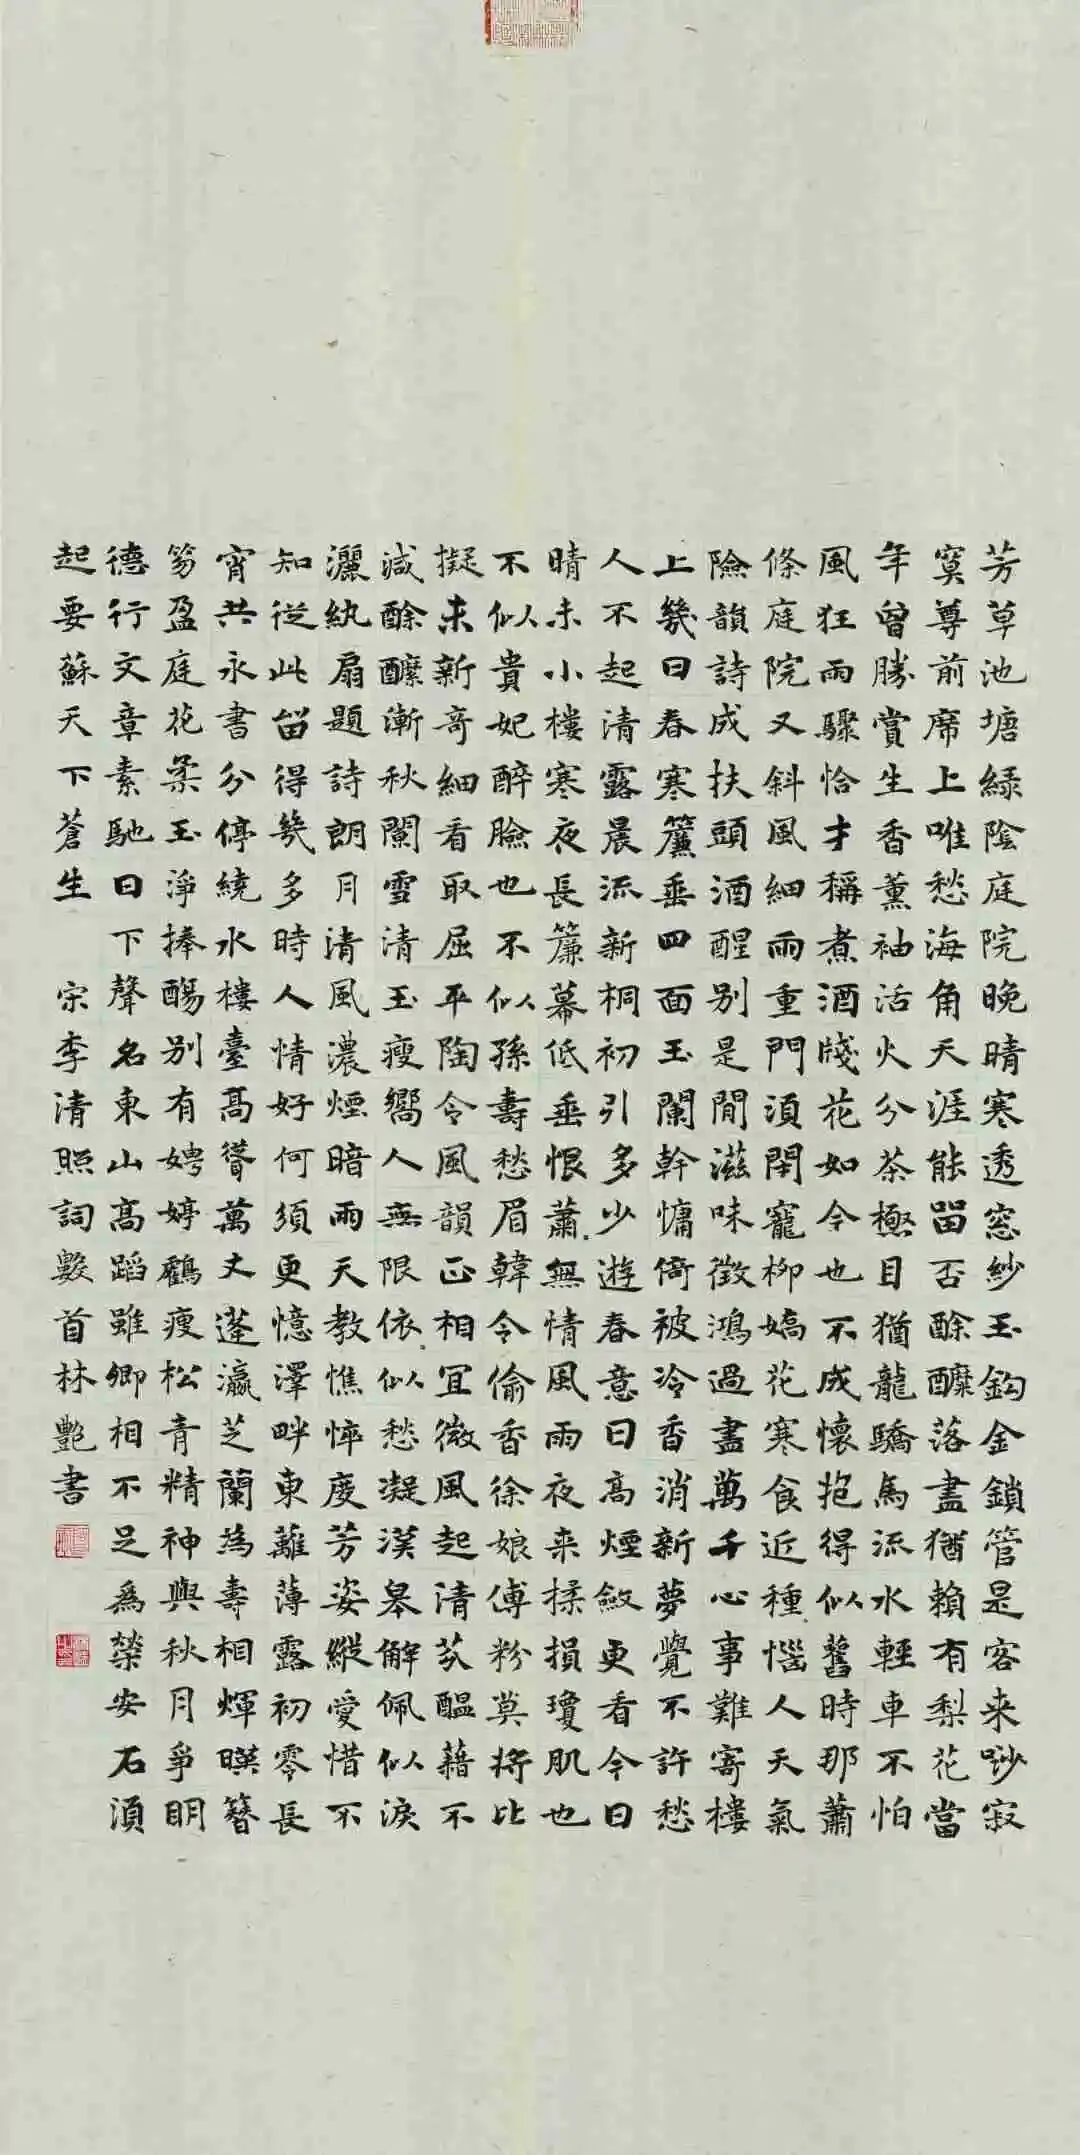 芳草池塘緑陰庭院晚晴寒透窓紗玉鈎金鎖管是客来唦寂
寞尊前席上唯愁海角天涯能留否酴醾落盡猶賴有梨花當
年曾勝賞生香薰袖活火分茶極目猶龍驕馬流水輕車不怕
風狂雨驟恰才稱煮酒牋花如今也不成懷抱得似舊時那蕭
條庭院又斜風細雨重門湏閉寵柳嬌花寒食近種種惱人天氣
險韻詩成扶頭酒醒别是閒滋味徵鴻過盡萬千心事難寄樓
上幾日春寒簾垂四面玉闌幹慵倚被冷香消新夢覺不許愁
人不起清露晨流新桐初引多少遊春意日高煙斂更看今日
晴未小樓寒夜長簾幕低垂恨蕭蕭無情風雨夜来揉損瓊肌也
不似貴妃醉臉也不似孫壽愁眉韓令偷香徐娘傅粉莫将比
擬未新奇細看取屈平陶令風韻正相宜微風起清芬醞藉不
減酴醾漸秋闌雪清玉瘦嚮人無限依依似愁凝漢皋解佩似淚
灑紈扇題詩朗月清風濃煙暗雨天教憔悴度芳姿縱愛惜不
知從此留得幾多時人情好何須更憶澤畔東籬薄露初零長
宵共永書分停繞水樓臺高聳萬丈蓬瀛芝蘭為壽相輝暎簪
笏盈庭花柔玉淨捧觴别有娉婷鶴瘦松青精神與秋月爭明
德行文章素馳日下聲名東山高蹈雖卿相不足為榮安石湏
起要蘇天下蒼生 宋李清照詞數首林艷書